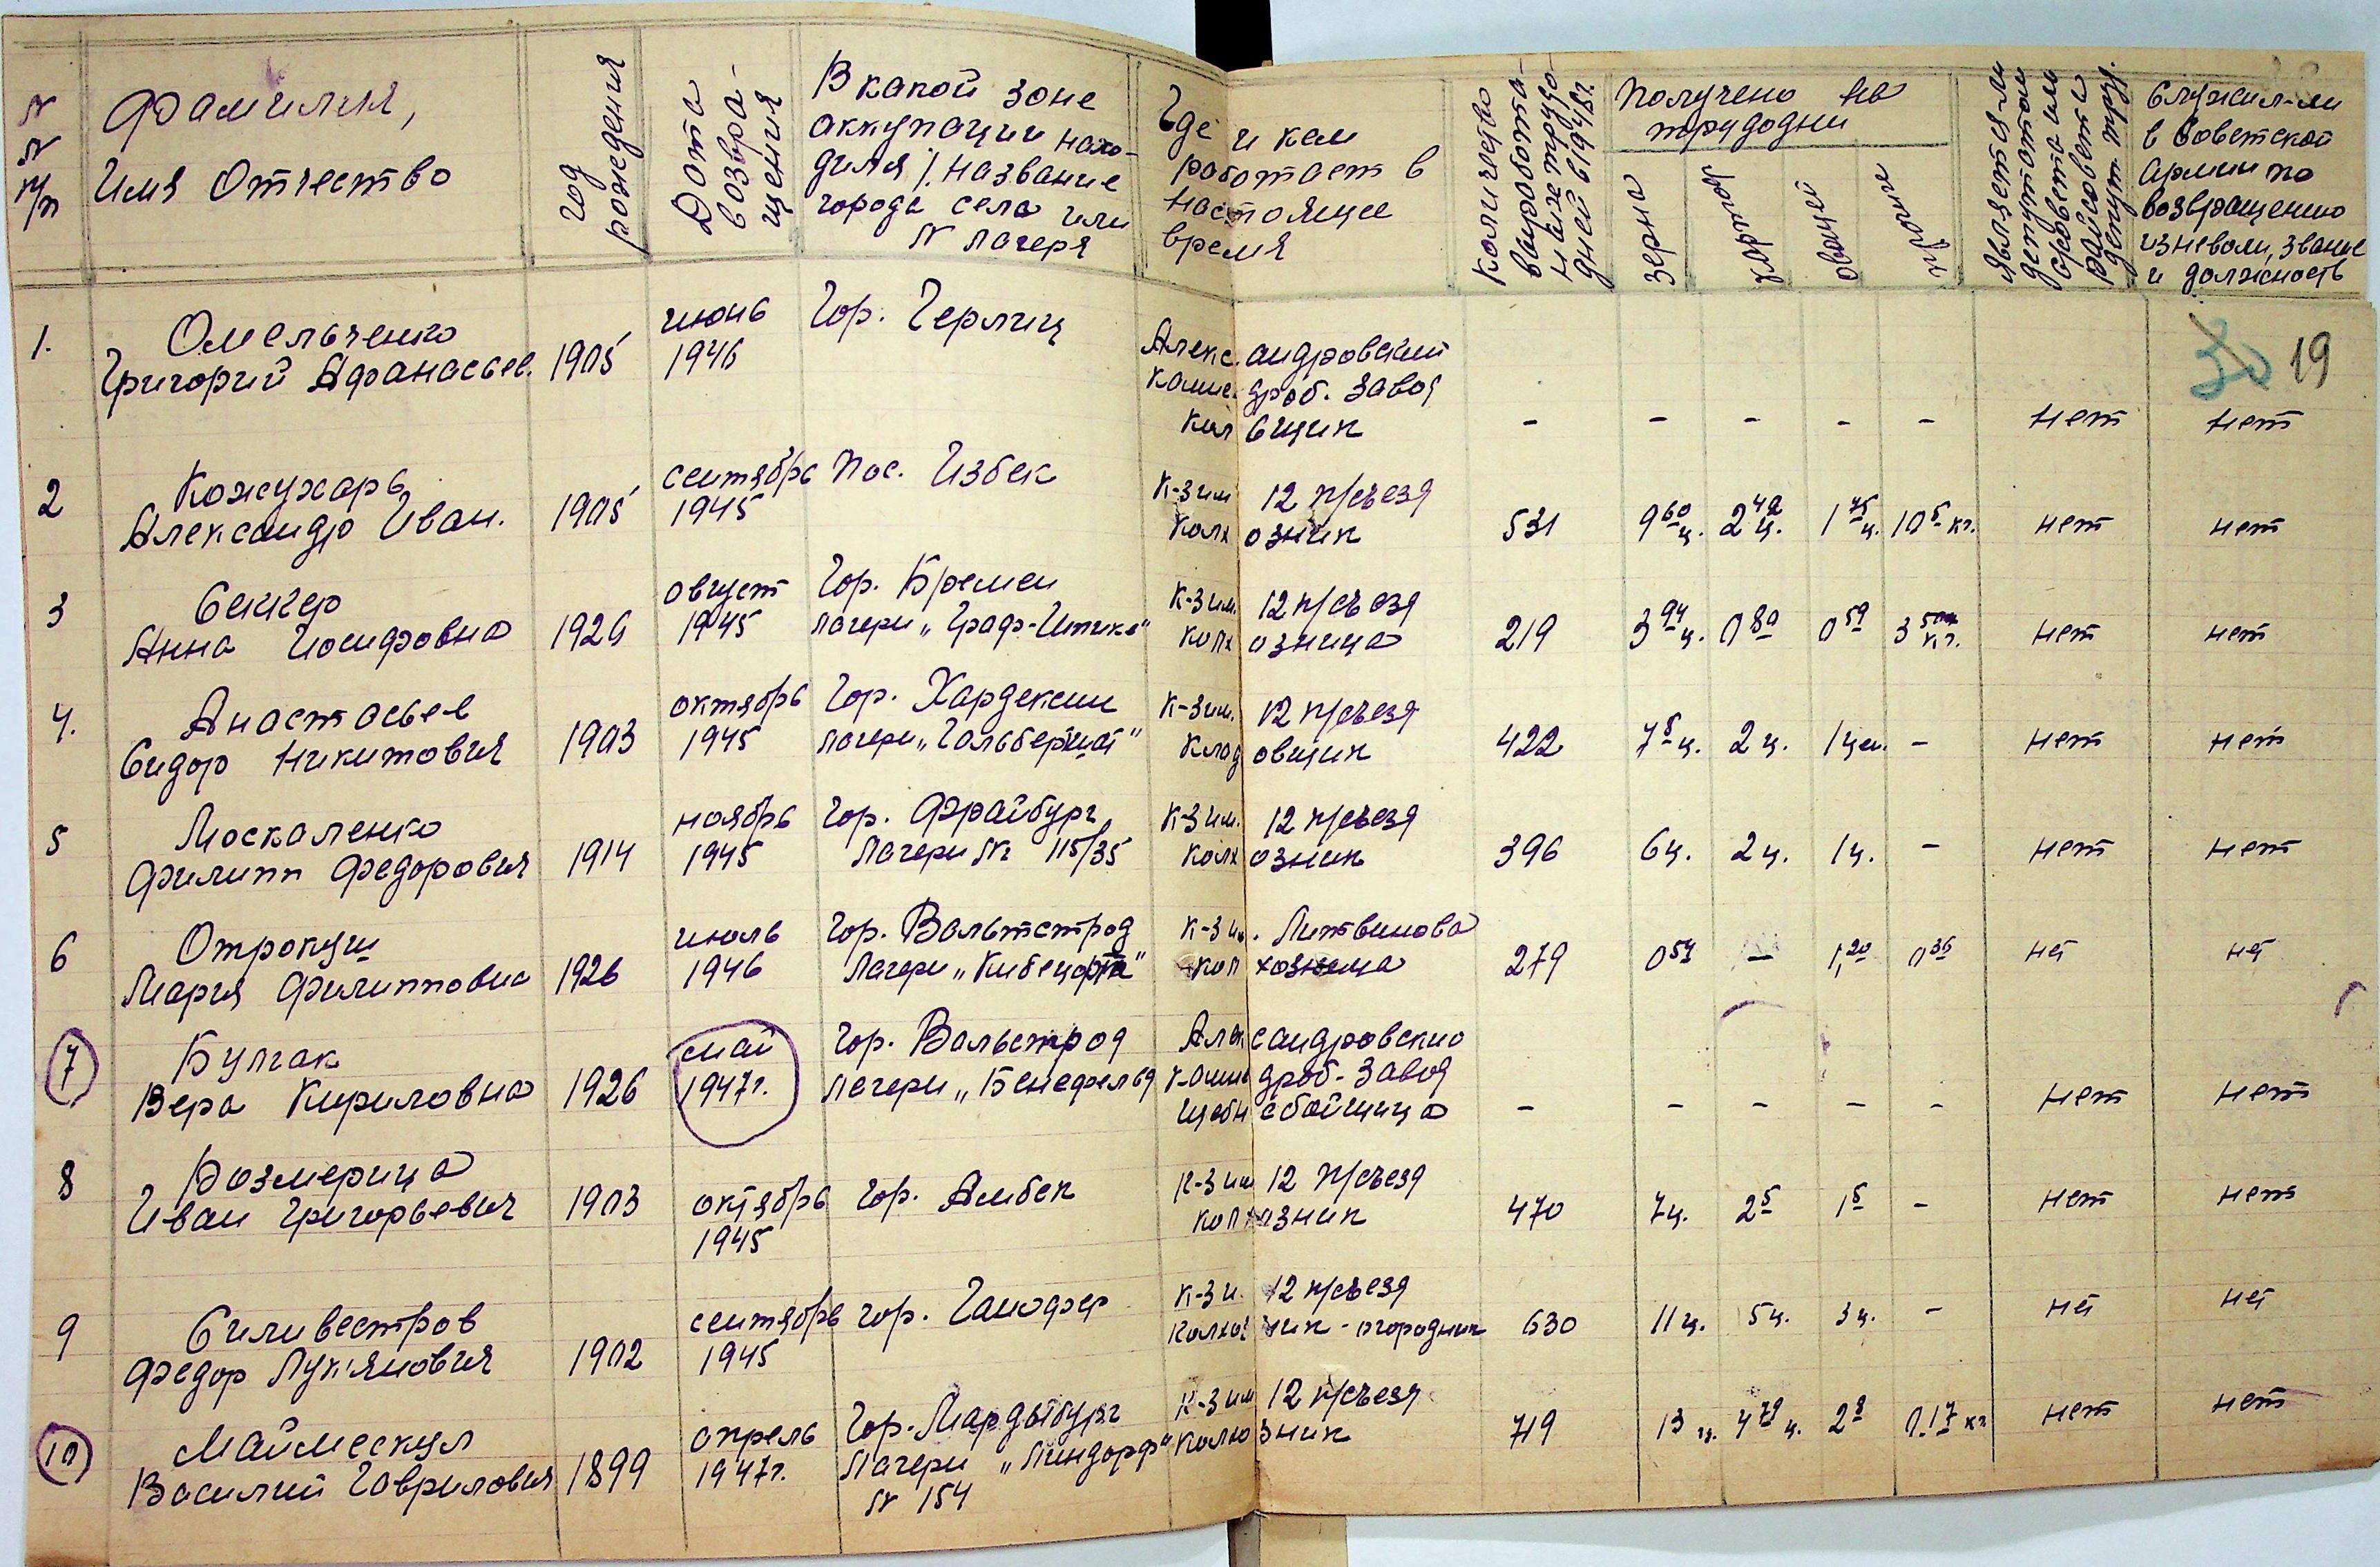 № № п/п
Фамилия,
Имя Отчество
год рождения
Дата возвра-
щения
В какой зоне
аккупации нахо-
дился /. название
города села или
№ лагеря
Где и кем
работает в
настоящее
время
Количество
выработа-
нных трудо-
дней в 1948г.
Получено на
трудодни
зерна
картоф
овощей
прочие
Является-ли
депутатом
с/совета или
райсовета
депут. труд.
Служил-ли
в Советской
армии по
возвращению
из неволи, звание
и должность
30 19
1. Омельченко июнь Гор. Герлиц
Григорий Афанасьев. 1905 1946 Алекс. андровский
камне. дроб. завод
кал вщик - - - - - нет нет
2 Кожухарь сентябрь Пос. Избек к-з им 12 п/съезд
Александр Иван. 1905 1945 колх озник 531 9 60 ц. 2 40 ц. 1 75 ц. 10 5 кг. нет нет
3 Секкер август Гор. Бремен к-з им. 12 п/съезд
Анна Иосифовна 1926 1945 лагери „Граф-Шпике" колх озница 219 3 94 ц. 0 80 0 59 3 5 кг. нет нет
4. Анастасьев октябрь Гор. Хардексин к-з им. 12 п/съезд
Сидор Никитович 1903 1945 лагери „Гальберштат" клад овщик 422 7 5 ц. 2 ц. 1 цен. - нет нет
5 Москаленко ноябрь Гор. Фрайбург к-з им. 12 п/съезд
Филипп Федорович 1914 1945 Лагери № 115/35 колх озник 396 6 ц. 2 ц. 1 ц. - нет нет
6 Отрокуш июль Гор. Вальтстрод к-з им. Литвинова
Мария Филипповна 1926 1946 Лагери кол хозница 279 0 54 - 1, 20 0 35 нет нет
7 Булгак май Гор. Вальстрод Алек сандровский
Вера Кириловна 1926 1947г. лагери „Бенефельд камне дроб-завод
щебн е бойщица - - - - - нет нет
8 Розмерица к-з им 12 п/съезд
Иван Григорьевич 1903 октябрь Гор. Амбек колх озник 470 7 ц. 2 5 1 5 - нет нет
1945
9 Силивестров сентябрь гор. Ганофер к-з и. 12 п/съезд
Федор Лук'янович 1902 1945 колхоз ник-огородник 630 11 ц. 5 ц. 3 ц. - нет нет
10 Маймескул апрель Гор. Мардыбург к-з им 12 п/съезд
Василий Гаврилович 1899 1947г. Лагери „Линдорф" колхо зник 719 13 ц. 4 79 ц. 2 8 0.17 кг нет нет
№ 154